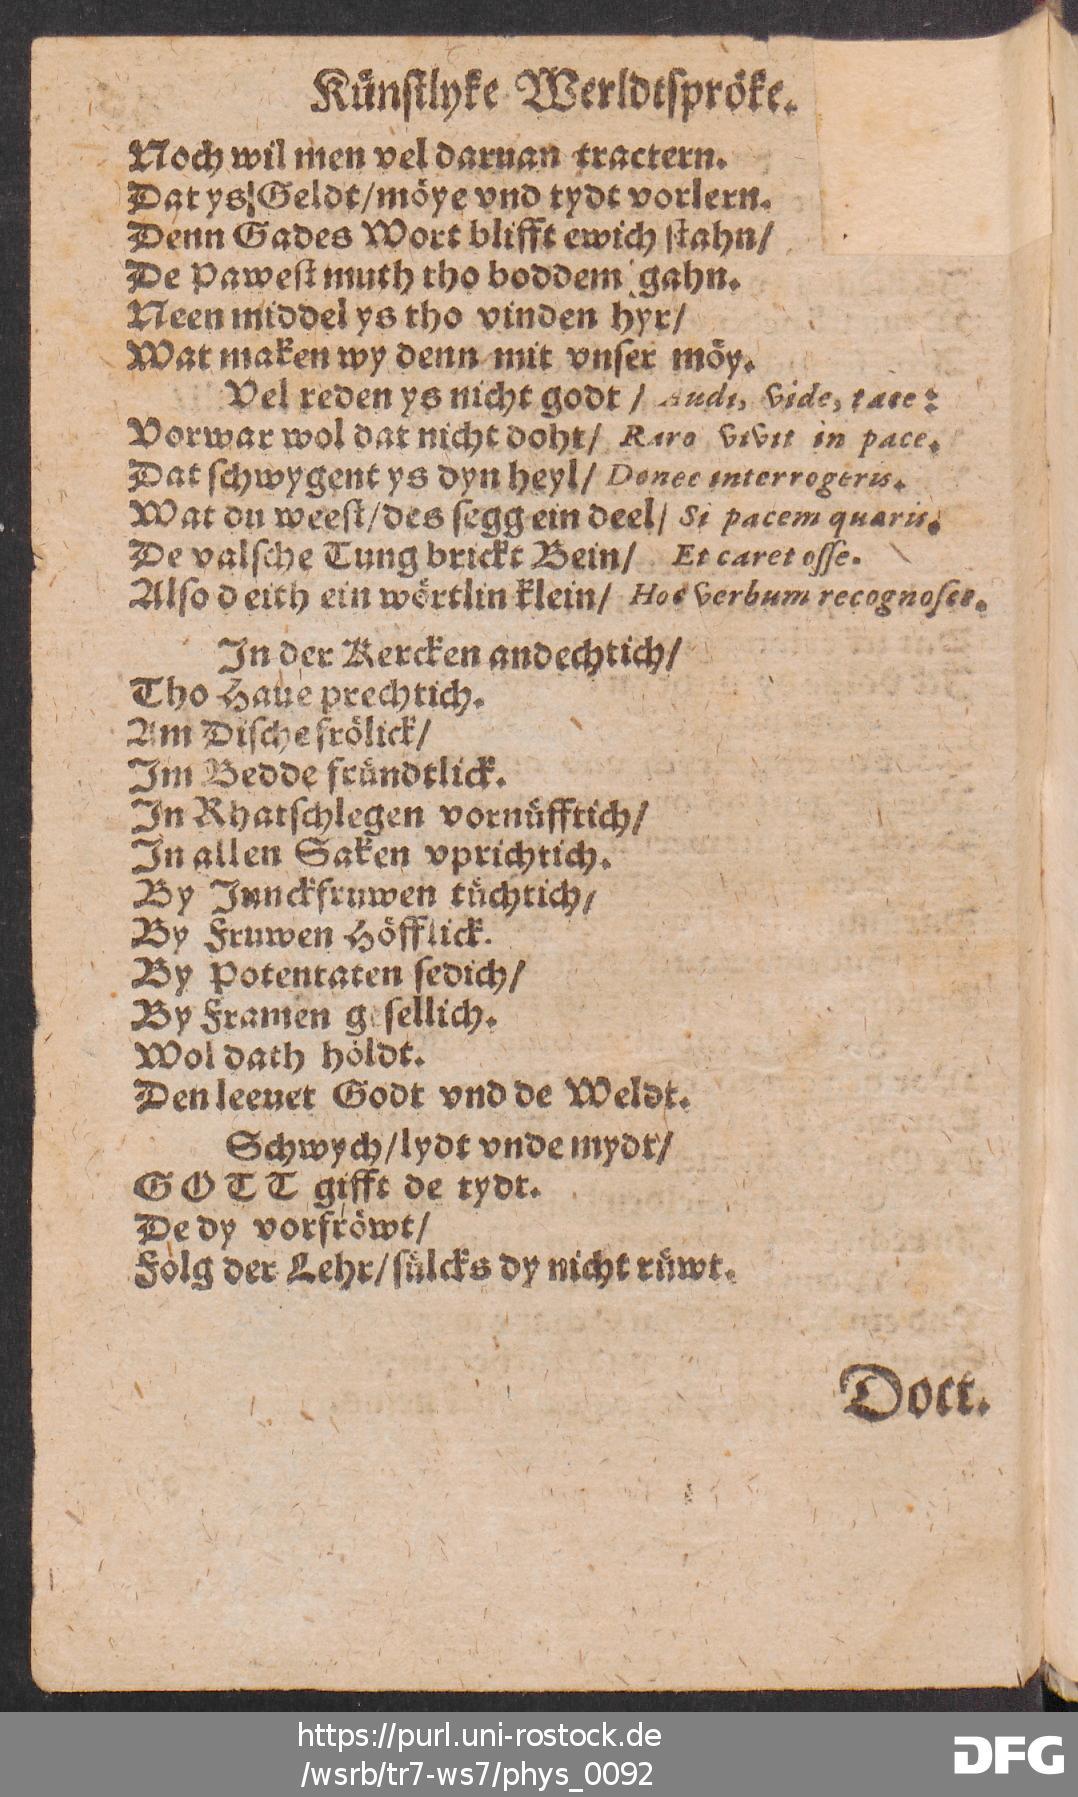 Kuͤnstlyke Werldtsproͤke.
Noch wil men vel daruan tractern.
Dat ys Geldt/moͤye vnd tydt vorlern.
Denn Gades Wort blifft ewich stahn/
De Pawest muth tho boddem gahn.
Neen middel ys tho vinden hyr/
Wat maken wy denn mit vnser moͤy.
Vel reden ys nicht godt / Audi, vide, tace:
Vorwar wol dat nicht doht/ Raro vivit in pace.
Dat schwygent ys dyn heyl/ Donec interrogeris.
Wat du weest/des segg ein deel/ Si pacem quæris.
De valsche Tung brickt Bein/ Et caret osse.
Also deith ein woͤrtlin klein/ Hoc verbum recognosce.
In der Kercken andechtich/
Tho Haue prechtich.
Am Dische froͤlick/
Im Bedde fruͤndtlick.
In Rhatschlegen vornuͤfftich/
In allen Saken vprichtich.
By Junckfruwen tuͤchtich/
By Fruwen Hoͤfflick.
By Potentaten sedich/
By Framen gesellich.
Wol dath hoͤldt.
Den leeuet Godt vnd de Weldt.
Schwych/lydt vnde mydt/
GOTT gifft de tydt.
De dy vorfroͤwt/
Folg der Lehr/suͤlcks dy nicht ruͤwt.
Doct.
https://purl.uni-rostock.de
/wsrb/tr7-ws7/phys_0092
DFG